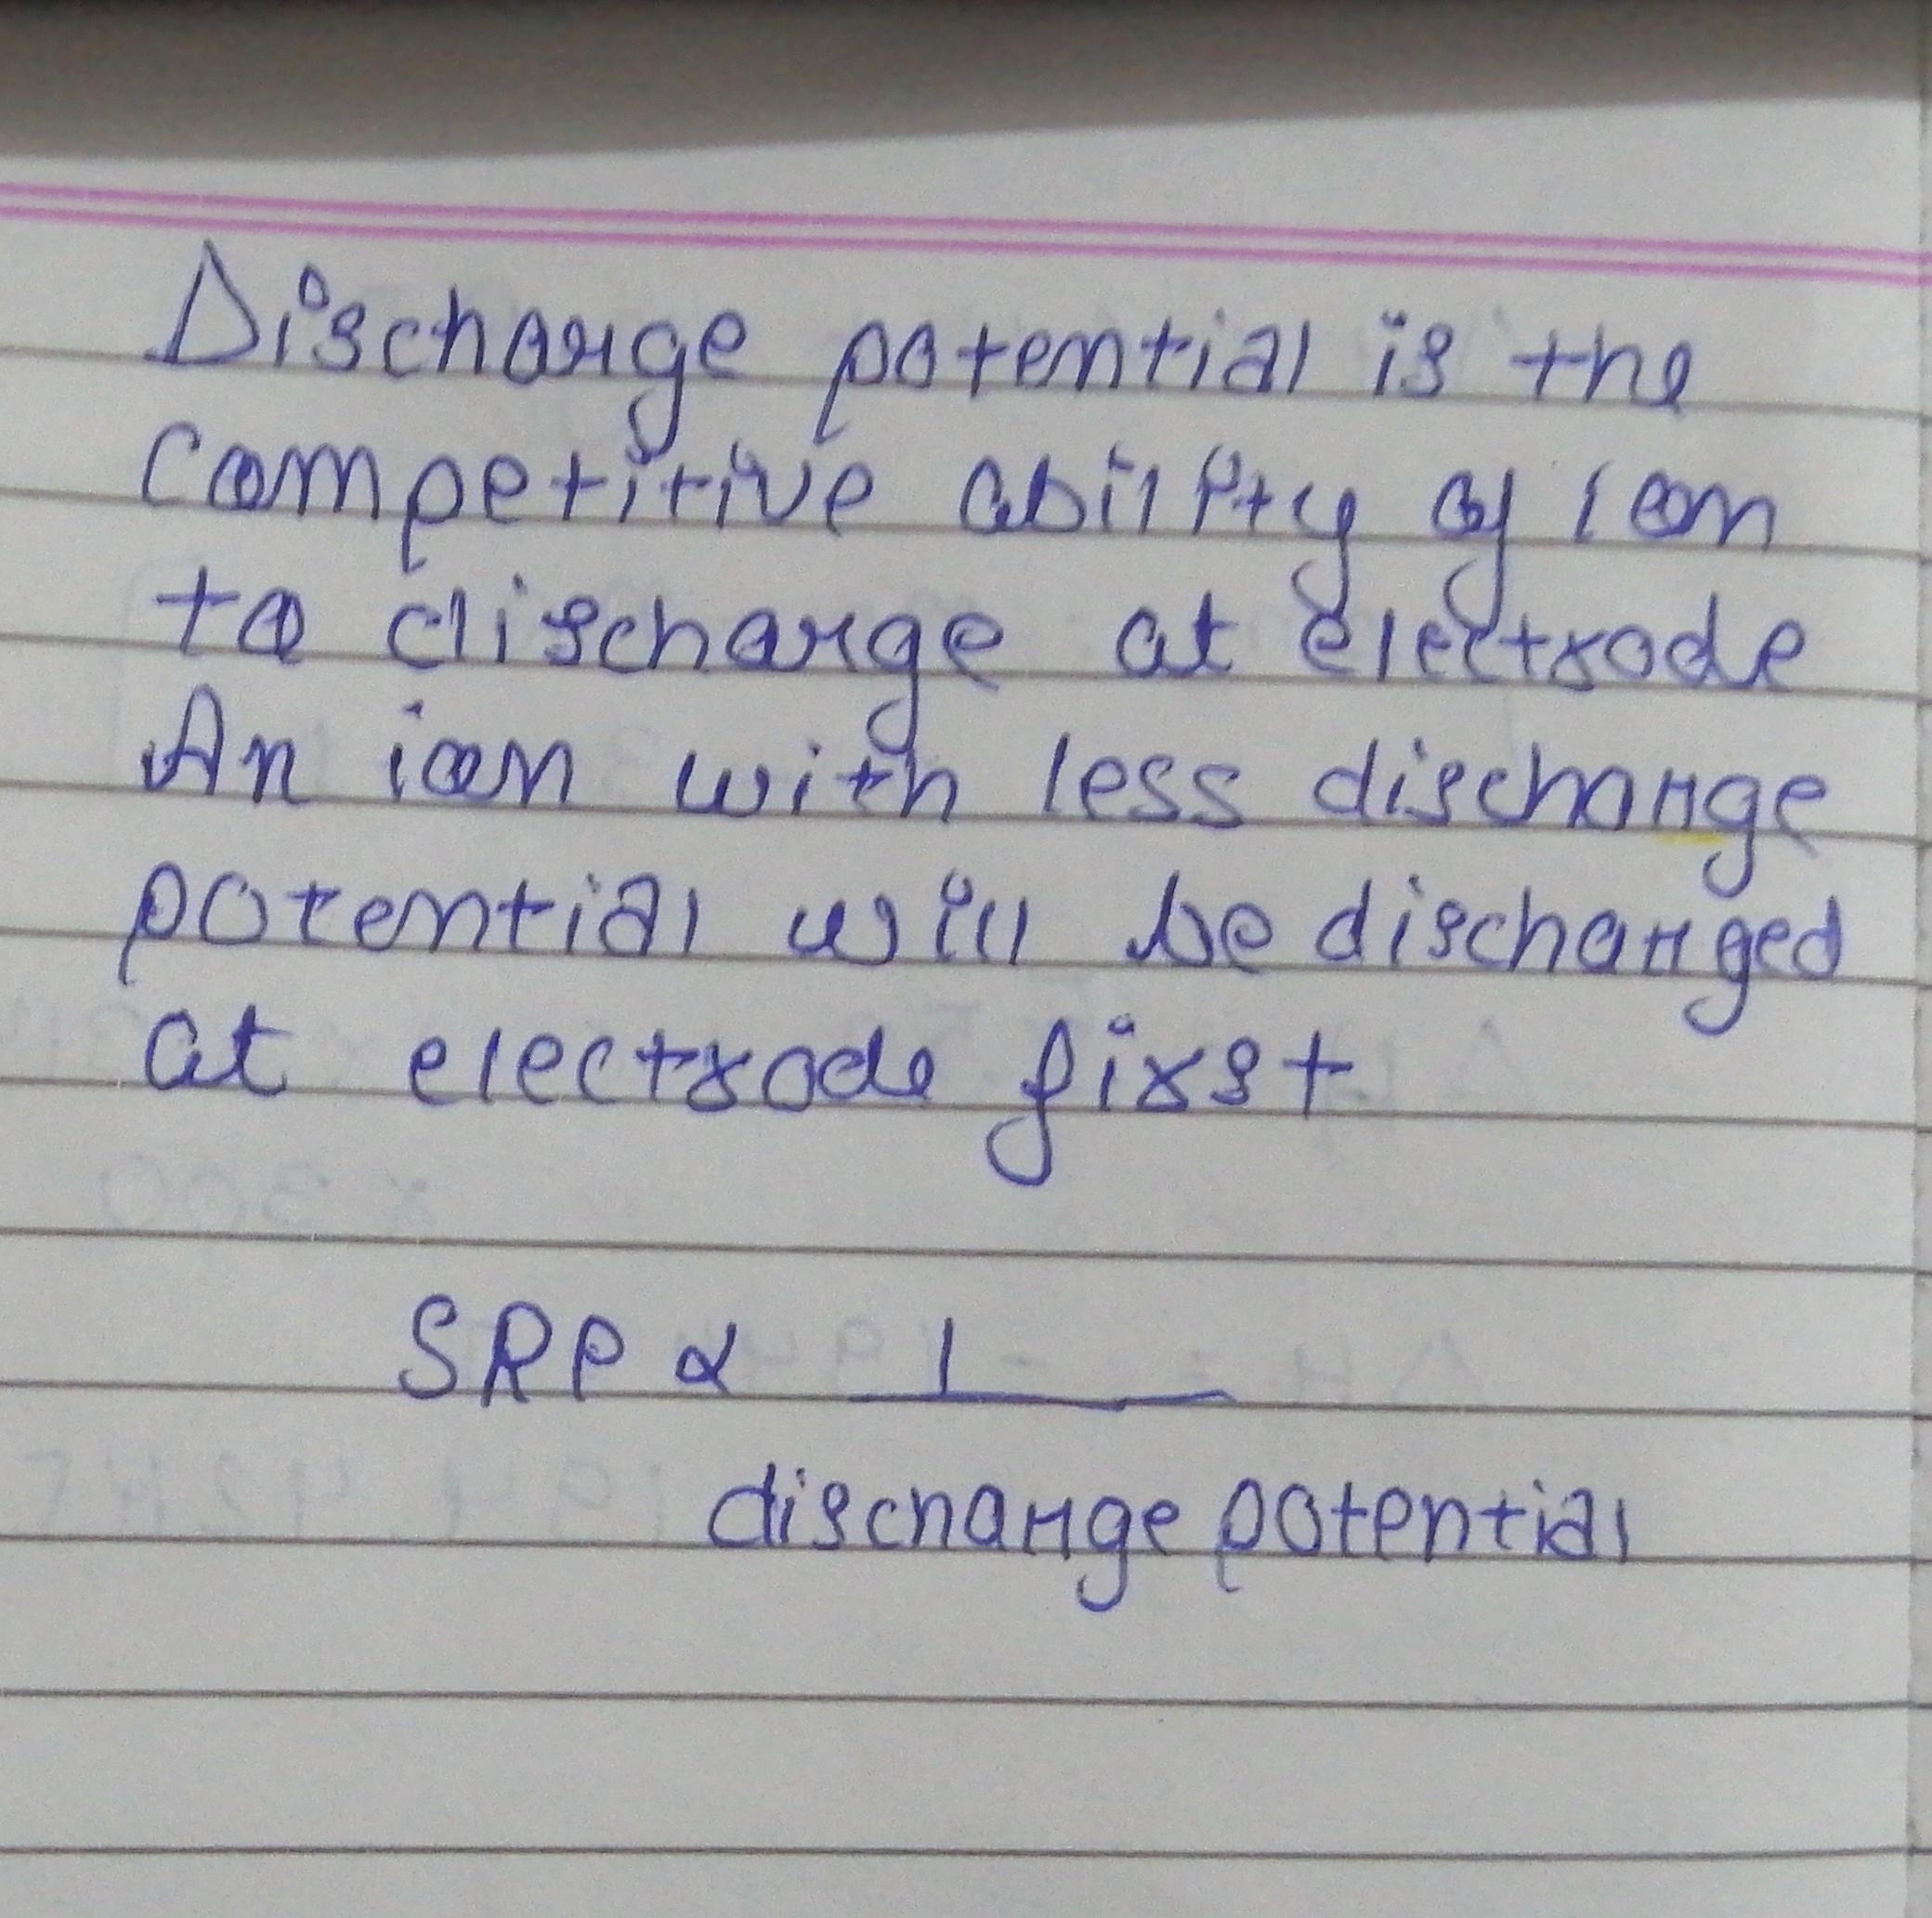 Discharge potential is the
competitive ability of ion
to discharge at electrode
An ion with less discharge
potential will be discharged
at electrode first
SRP ∝ 1
discharge potential